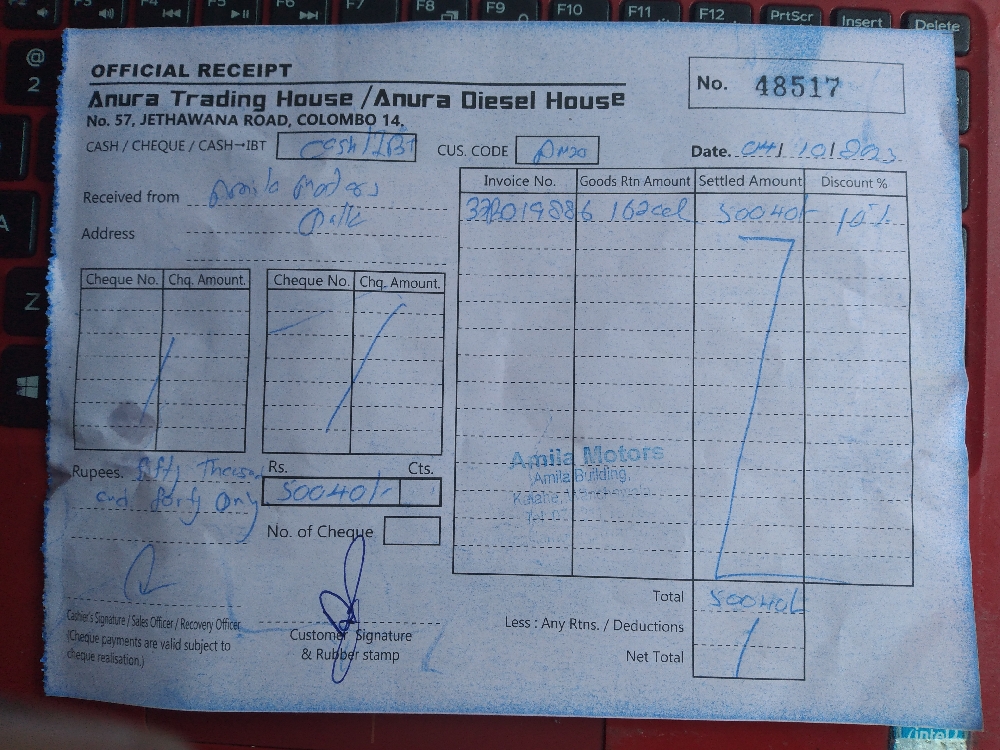 OFFICIAL RECEIPT
No. 48517
Anura Trading House / Anura Diesel House
No. 57, JETHAWANA ROAD, COLOMBO 14.
CASH / CHEQUE / CASH-IBT Cash/IBT CUS. CODE Date. 04/10/2023
Received from Amila Motors
Address
Invoice No. Goods Rtn Amount Settled Amount Discount %
50040/- 10%
Cheque No. Chq. Amount. Cheque No. Chq. Amount.
Rupees. fifty Thousand
and forty Only
Rs. Cts.
50040/-
No. of Cheque
Amila Motors
Amila Building,
Total 50040/-
Less : Any Rtns. / Deductions
Net Total
Cashier's Signature / Sales Officer / Recovery Officer
(Cheque payments are valid subject to
cheque realisation.)
Customer Signature
& Rubber stamp
F7
F8
F9
F10
F11
F12
PrtScr
Insert
Delete
@
2
A
Z
intel